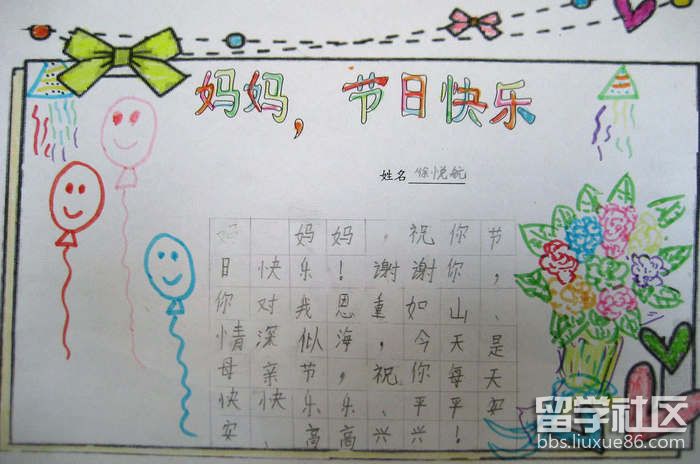 妈妈，节日快乐
姓名 徐悦航
妈 妈妈，祝你节
日快乐！谢谢你，
你对我恩重如山、
情深似海，今天是
母亲节，祝你每天
快快乐乐、平平安
安、高高兴兴！
留学社区
bbs.liuxue86.com